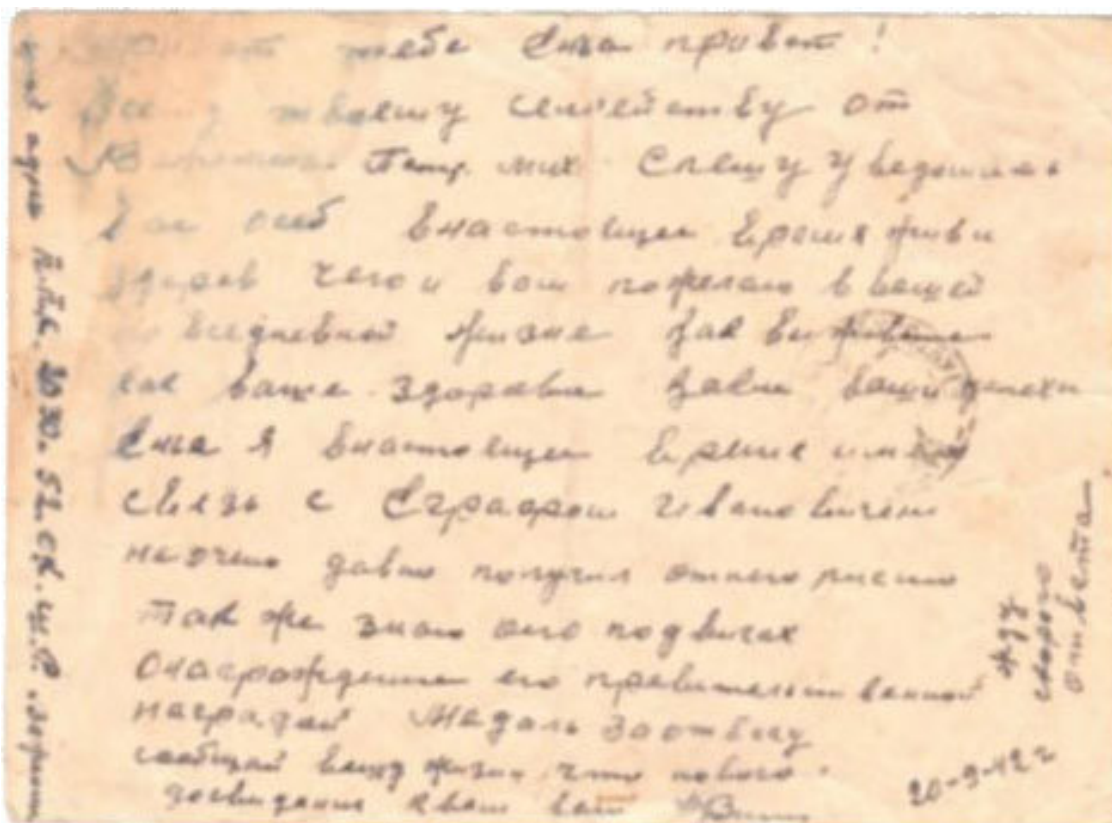 тебе Сима привет!
твоему семейству от
Петр. мих. Спешу уведомить
Вас внастоящее время жив и
здоров чего и вам пожелаю в вашей
вседневной жизне как вы живете
как ваше здоровье каковы ваши успехи
Сима я внастоящее время имею
связь с Евграфом Ивановичем
не очень давно получил отнего письмо
так же знаю оего подвигах
онаграждении его правительственной
наградой медаль Заотвагу
сообщай вашу жизнь что нового.
досвидания ваш
жду
скорого
ответа
20-9-42 г